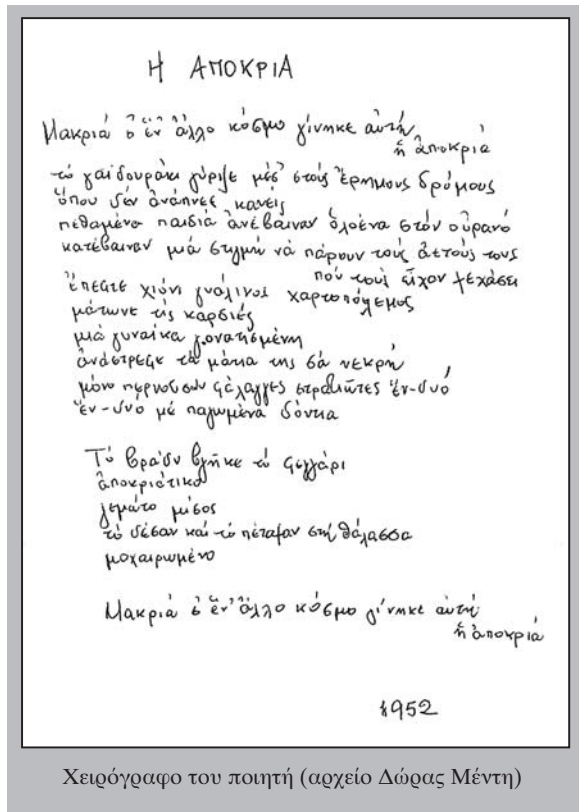 Η ΑΠΟΚΡΙΑ
Μακριά σ' ἕν' ἄλλο κόσμο γίνηκε αὐτή
ἡ ἀποκριά
τὸ γαϊδουράκι γύριζε μὲς στοὺς ἔρημους δρόμους
ὅπου δὲν ἀνάπνεε κανείς
πεθαμένα παιδιὰ ἀνέβαιναν ὁλοένα στὸν οὐρανό
κατέβαιναν μιὰ στιγμὴ νὰ πάρουν τοὺς ἀετούς τους
ποὺ τοὺς εἶχαν ξεχάσει
ἔπεφτε χιόνι γυάλινος χαρτοπόλεμος
μάτωνε τὶς καρδιές
μιὰ γυναίκα γονατισμένη
ἀνάστρεφε τὰ μάτια της σὰ νεκρή
μόνο περνοῦσαν φάλαγγες στρατιῶτες ἕν-δυό
ἕν-δυό μὲ παγωμένα δόντια
Τὸ βράδυ βγῆκε τὸ φεγγάρι
ἀποκριάτικο
γεμάτο μίσος
τὸ δέσαν καὶ τὸ πέταξαν στὴ θάλασσα
μαχαιρωμένο
Μακριά σ' ἕν' ἄλλο κόσμο γίνηκε αὐτή
ἡ ἀποκριά
1952
Χειρόγραφο του ποιητή (αρχείο Δώρας Μέντη)